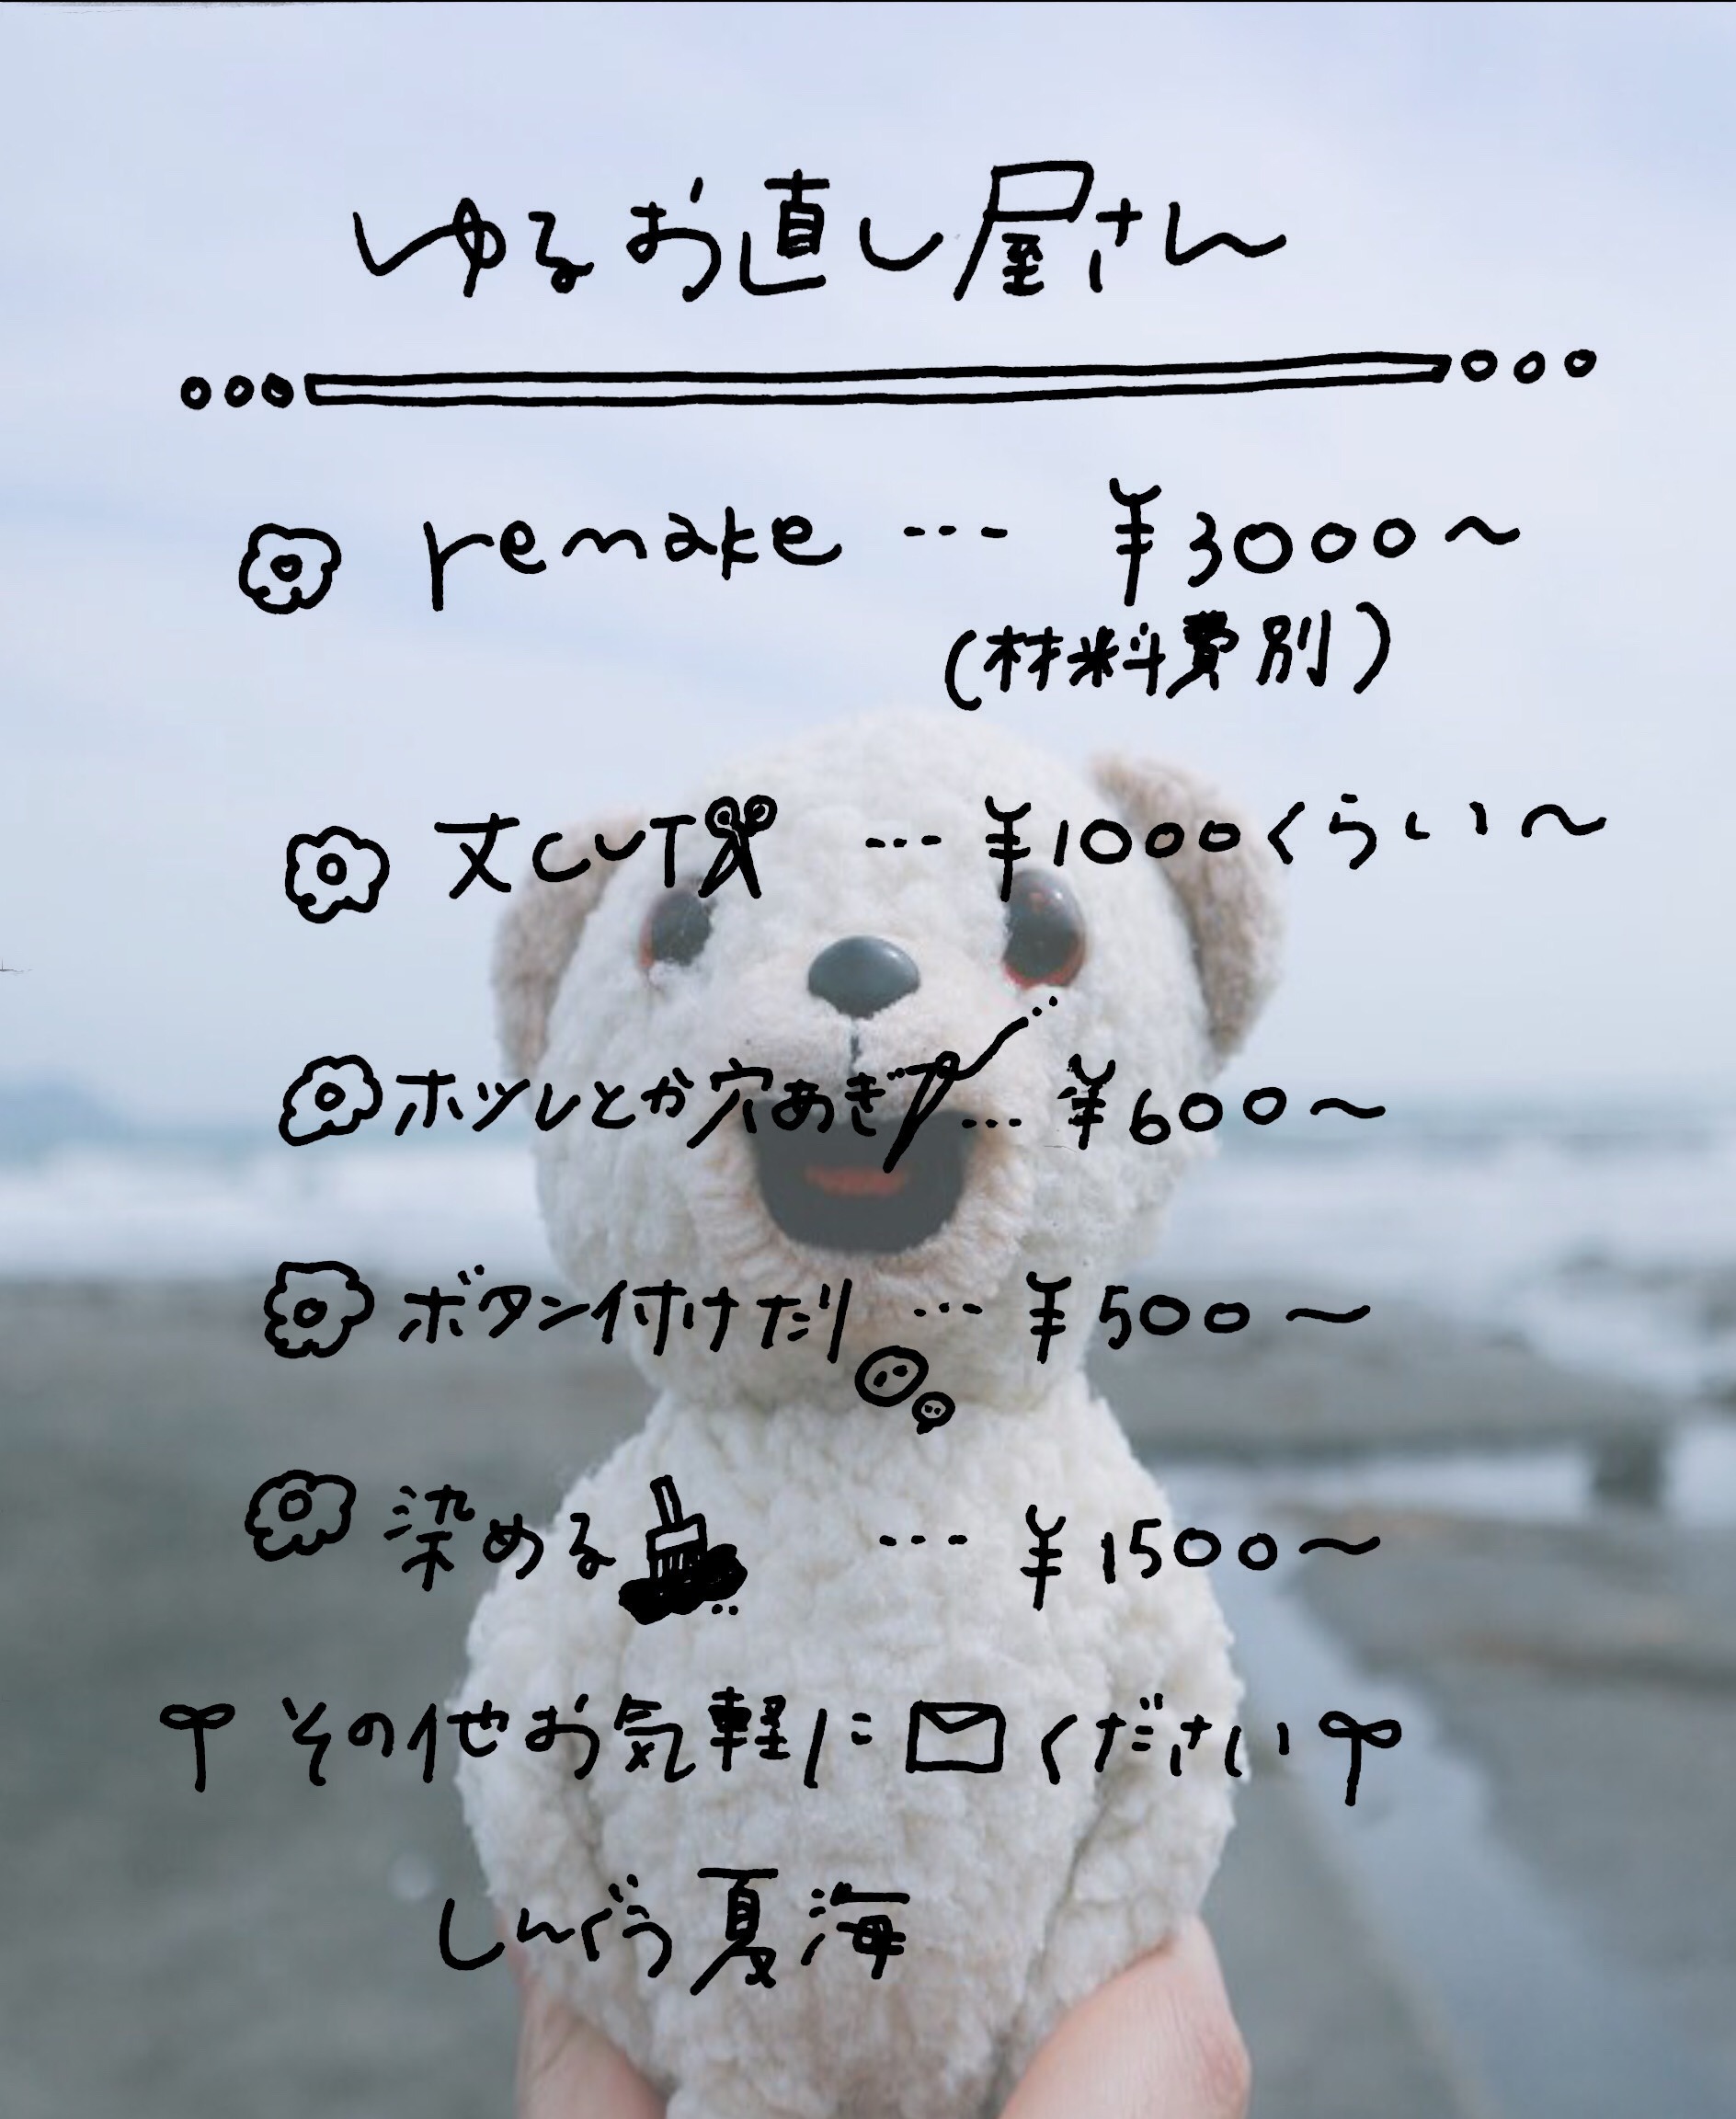 ゆるお直し屋さん
remake … ¥3000〜
(材料費別)
丈CUT … ¥1000くらい〜
ホツレとか穴あき … ¥600〜
ボタン付けたり … ¥500〜
染める … ¥1500〜
その他お気軽に✉ください
しんぐう夏海